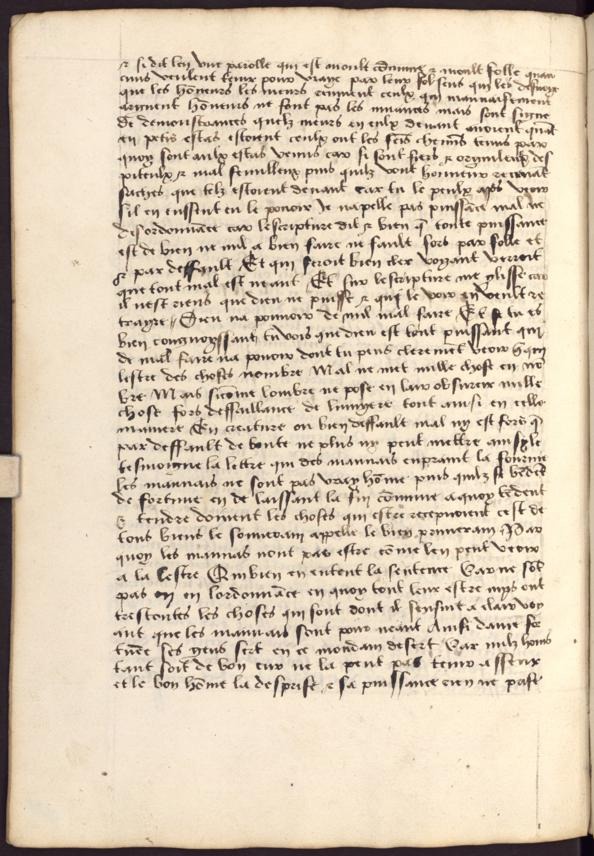 ⁊ si dit len vne parolle qui est moult cōmune ⁊ moult folle quāt
cuns veulent tenir pour vraye par leur fol sens qui les desuoye
que les honneurs les meurs remuent ceulx qui mauuaisement
arguent honneurs ne font pas les muances mais sont signe
de demonstrances quelz meurs en eulx deuant auoient quāt
en petis estas estoient ceulx ont les feis chemis tenus par
quoy sont aulx estas venus car si sont fiers ⁊ orguilleux des
piteulx ⁊ mal semilleux puis quilz vont honneur receuāt
saches que telz estoient deuant Car tu le peulx aps veoir
sil en eussent eu le pouoir Je napelle pas puissāce mal ne
desordonnāce car lescripture dit ⁊ bien q̄ toute puissance
est de bien ne nul a bien faire ne fault fors par folle et
⁊ par deffault Et qui seroit bien cler voyant verroit
que tout mal est neant Et sur lescripture me glisse car
il nest riens que dieu ne puisse ⁊ qui le voir en veult re
trayre // Dieu na pouuoir de nul mal faire Et se tu es
bien congnoyssant tu vois que dieu est tout puissant qui
de mal faire na pouoir dont tu peus cleremēt veoir q̄ qui
lestre des choses nombre Mal ne met nulle chose en nō
bre Mais sicōme lombre ne pose en lair obscurcie nulle
chose fors deffaillance de lumyere tout ainsi en celle
maniere En creature ou bien deffault mal ny est fors q̄
par deffault de bonte ne plus ny peut mettre ainsy le
tesmoigne la lettre qui des mauuais enprant la somme
les mauuais ne sont pas vray hōme puis quilz se
de fortune en de laissant la fin cōmune a quoy tēdent
⁊ tendre doiuent les choses qui estre recepuoient cest de
tous biens le souuerain appelle le bien prumerain Par
quoy les mauuais nont pas estre cōme len peut veoir
a la lestre Qui bien en entent la sentence Car ne sōt
pas en lordonnāce en quoy tout leur estre mys ont
trestoutes les choses qui sont dont il sensuit a clair voy
ant que les mauuais sont pour neant Ainsi dame for
tune ses gens sert en ce mondain desert Car nulz homs
tant soit de bon eur ne la peut pas tenir asseur
et le bon hōme la desprise ⁊ sa puissance rien ne prise